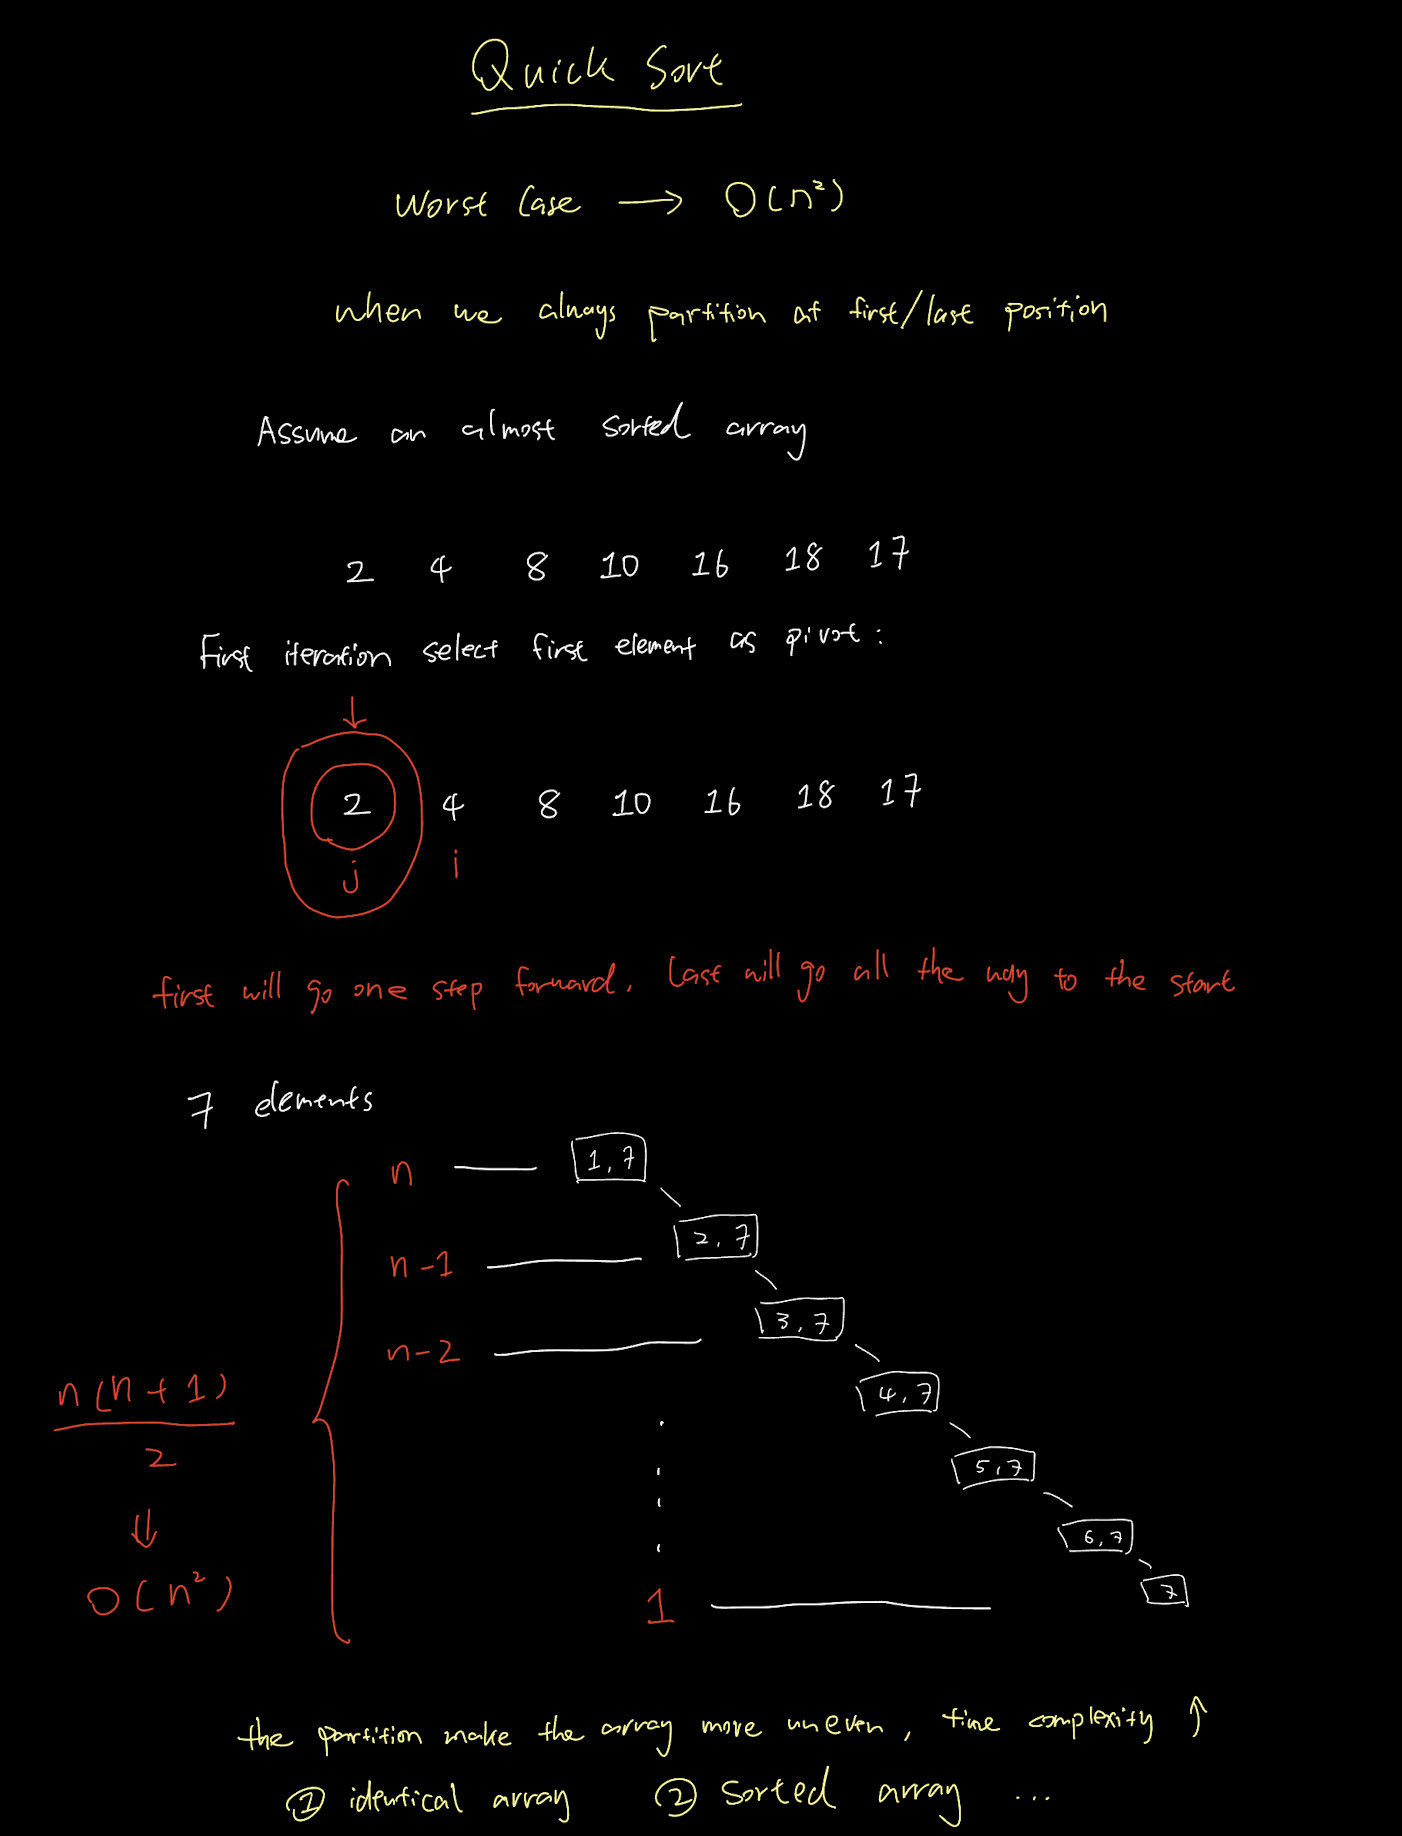 Quick Sort
Worst Case → O(n²)
when we always partition at first/last position
Assume an almost sorted array
2 4 8 10 16 18 17
First iteration select first element as pivot :
↓
2 4 8 10 16 18 17
j i
first will go one step forward, last will go all the way to the start
7 elements
n 1, 7
n-1 2, 7
n-2 3, 7
4, 7
n(n+1)
2
5, 7
⇓
6, 7
O(n²)
1 7
the partition make the array more uneven, time complexity ↑
① identical array ② sorted array ...